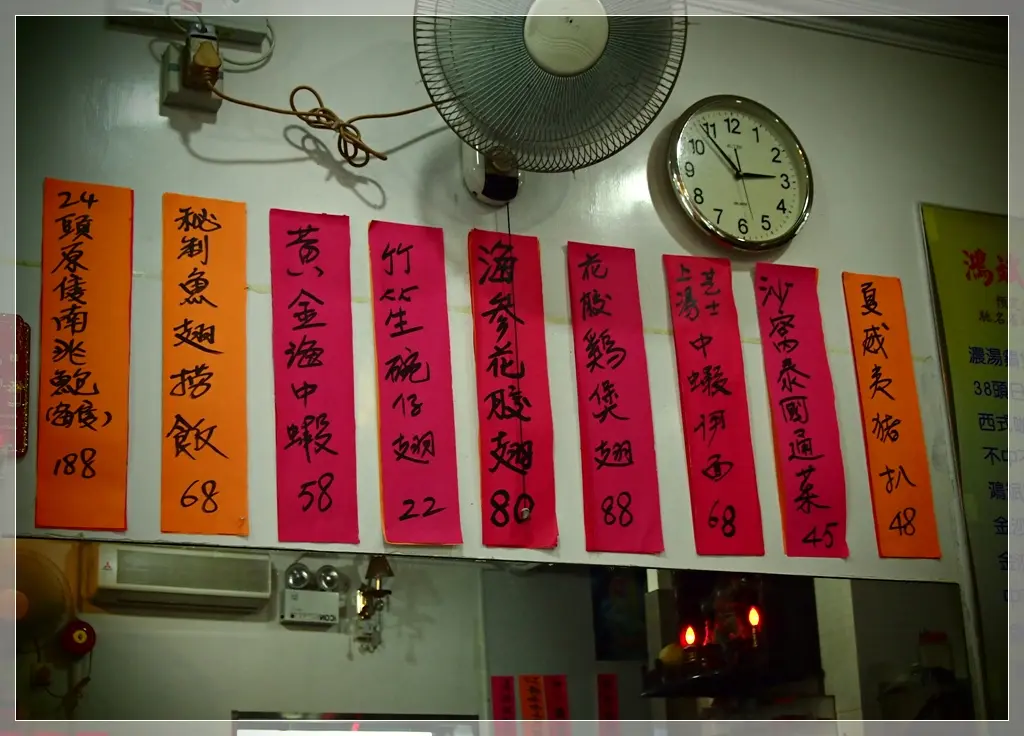 24頭原隻南非鮑(每隻) 188
秘制魚翅撈飯 68
黃金海中蝦 58
竹笙碗仔翅 22
海參花膠翅 80
花膠雞煲翅 88
上湯芝士中蝦伊面 68
沙窩泰國通菜 45
夏威夷豬扒 48
12 1 2 3 4 5 6 7 8 9 10 11
鴻
濃湯
38頭
西式
金